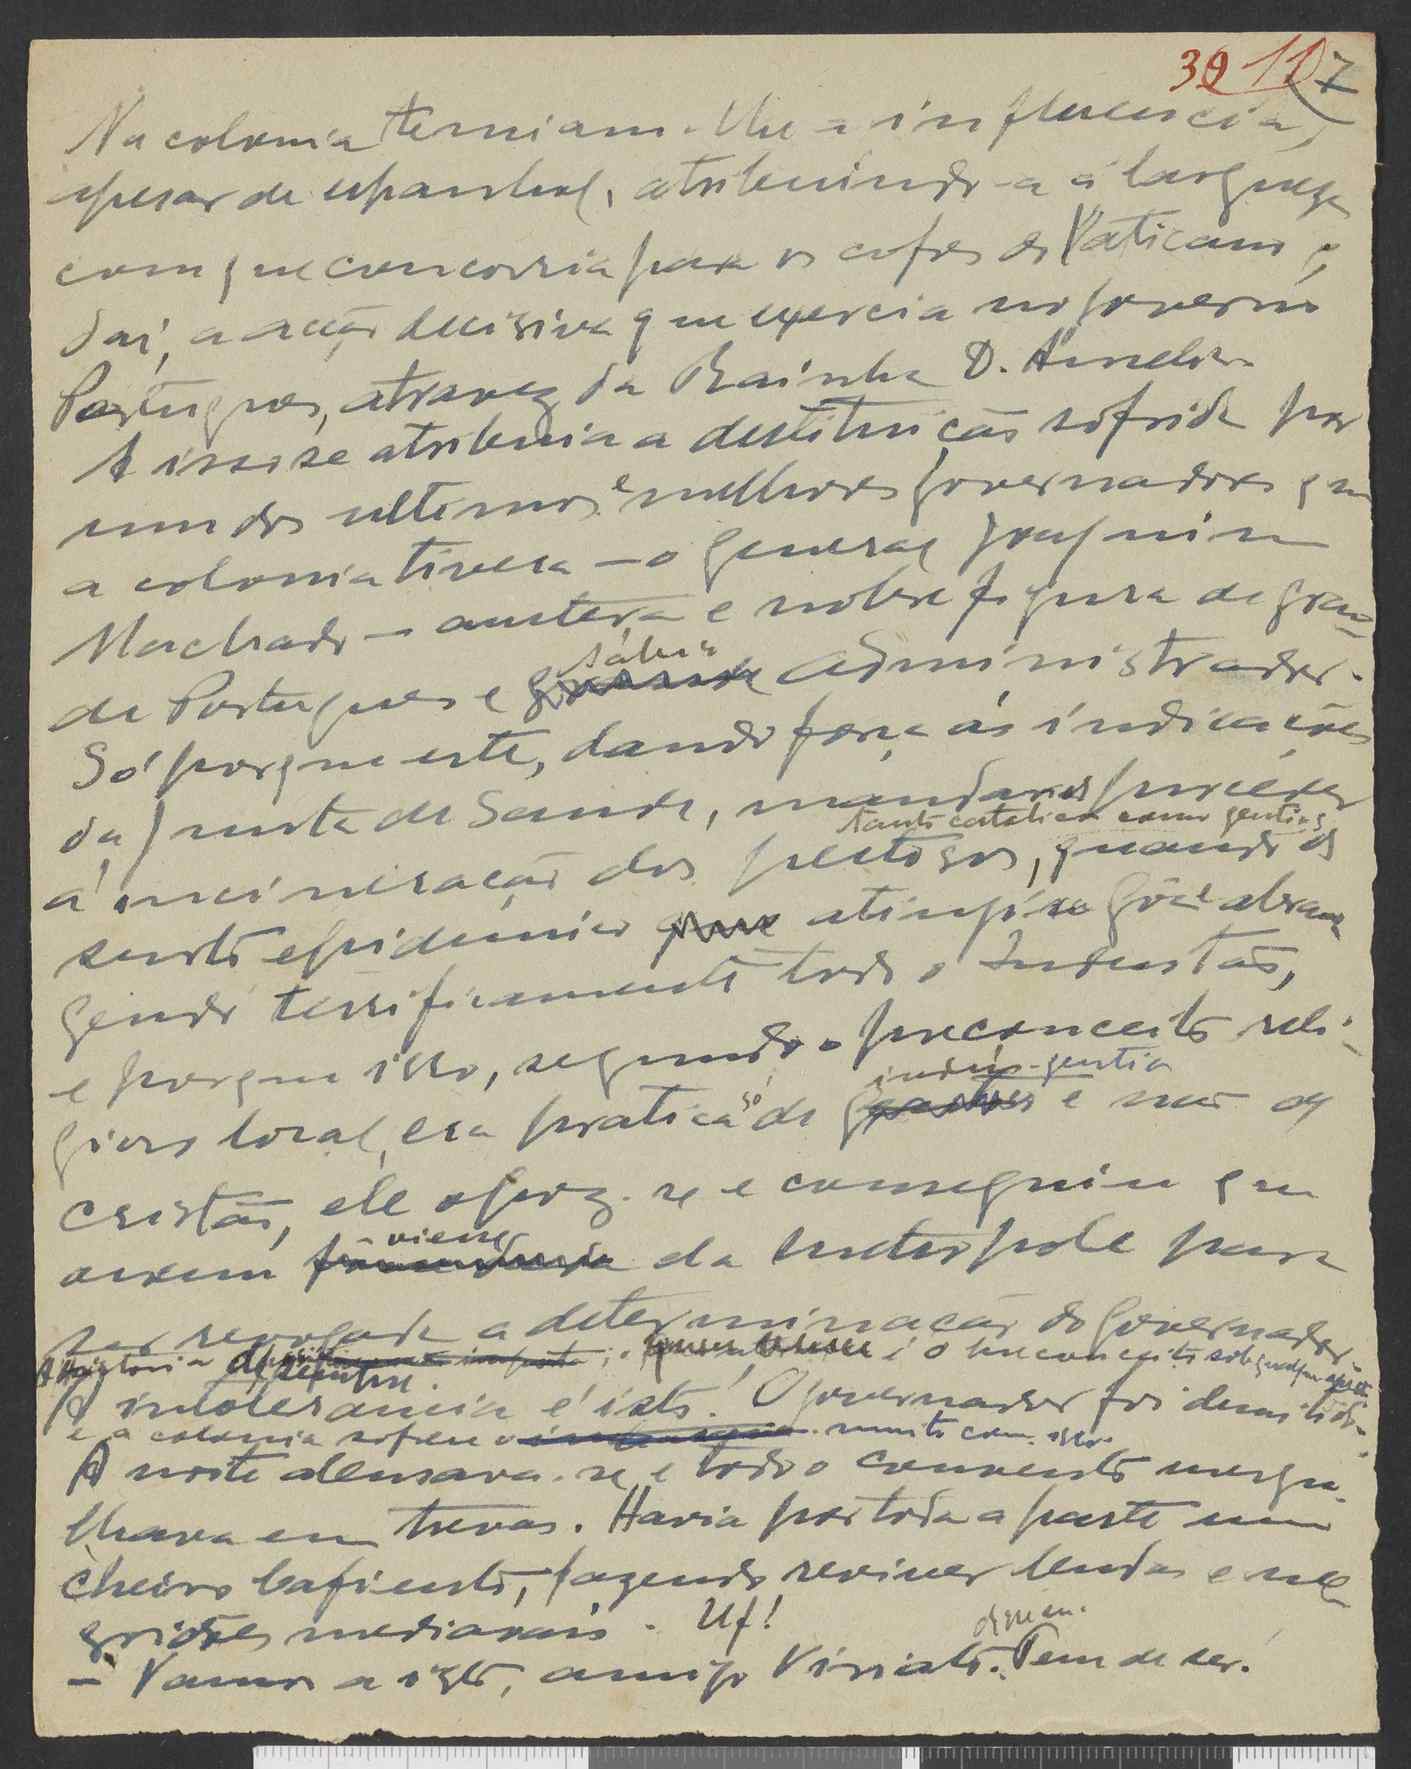 39 117
Na colonia temiam-lhe a influencia,
apesar de espanhol, atribuindo-a á largueza
com que concorria para os cofres do Vaticano e,
daí, a acção decisiva que exercia no governo
Portugues, atravez da Rainha D. Amelia.
A isso se atribuia a destituição sofrida por
um dos ultimos e melhores governadores que
a colonia tivera — o general Joaquim
Machado — austera e nobre figura de gran-
sábio
de Portugues e grande administrador.
Só porque este, dando força ás indicações
da Junta de Saude, mandara proceder
tanto catolicos como gentios
á incineração dos pestosos, quando o
surto epidémico que atingira Gôa abran-
gendo terrificamente todo o Industão,
e porque isso, segundo o preconceito reli-
indú-gentia
gioso local, era pratica só de gentios e não de
cristão, ele opoz-se e conseguiu que
viesse
ordem da metropole para
ser revogada a determinação do Governador.
A historia de sempre. o preconceito sob qualquer aspecto
A intolerancia é isto! O governador foi demitido
e a colonia sofreu muito com isso.
A noite adensava-se e todo o convento mergu-
lhava em trevas. Havia por toda a parte um
cheiro bafiento, fazendo reviver lendas e ne-
gridões mediavais. Uf!
disseram.
— Vamos a isto, amigo Viriato. Tem de ser.